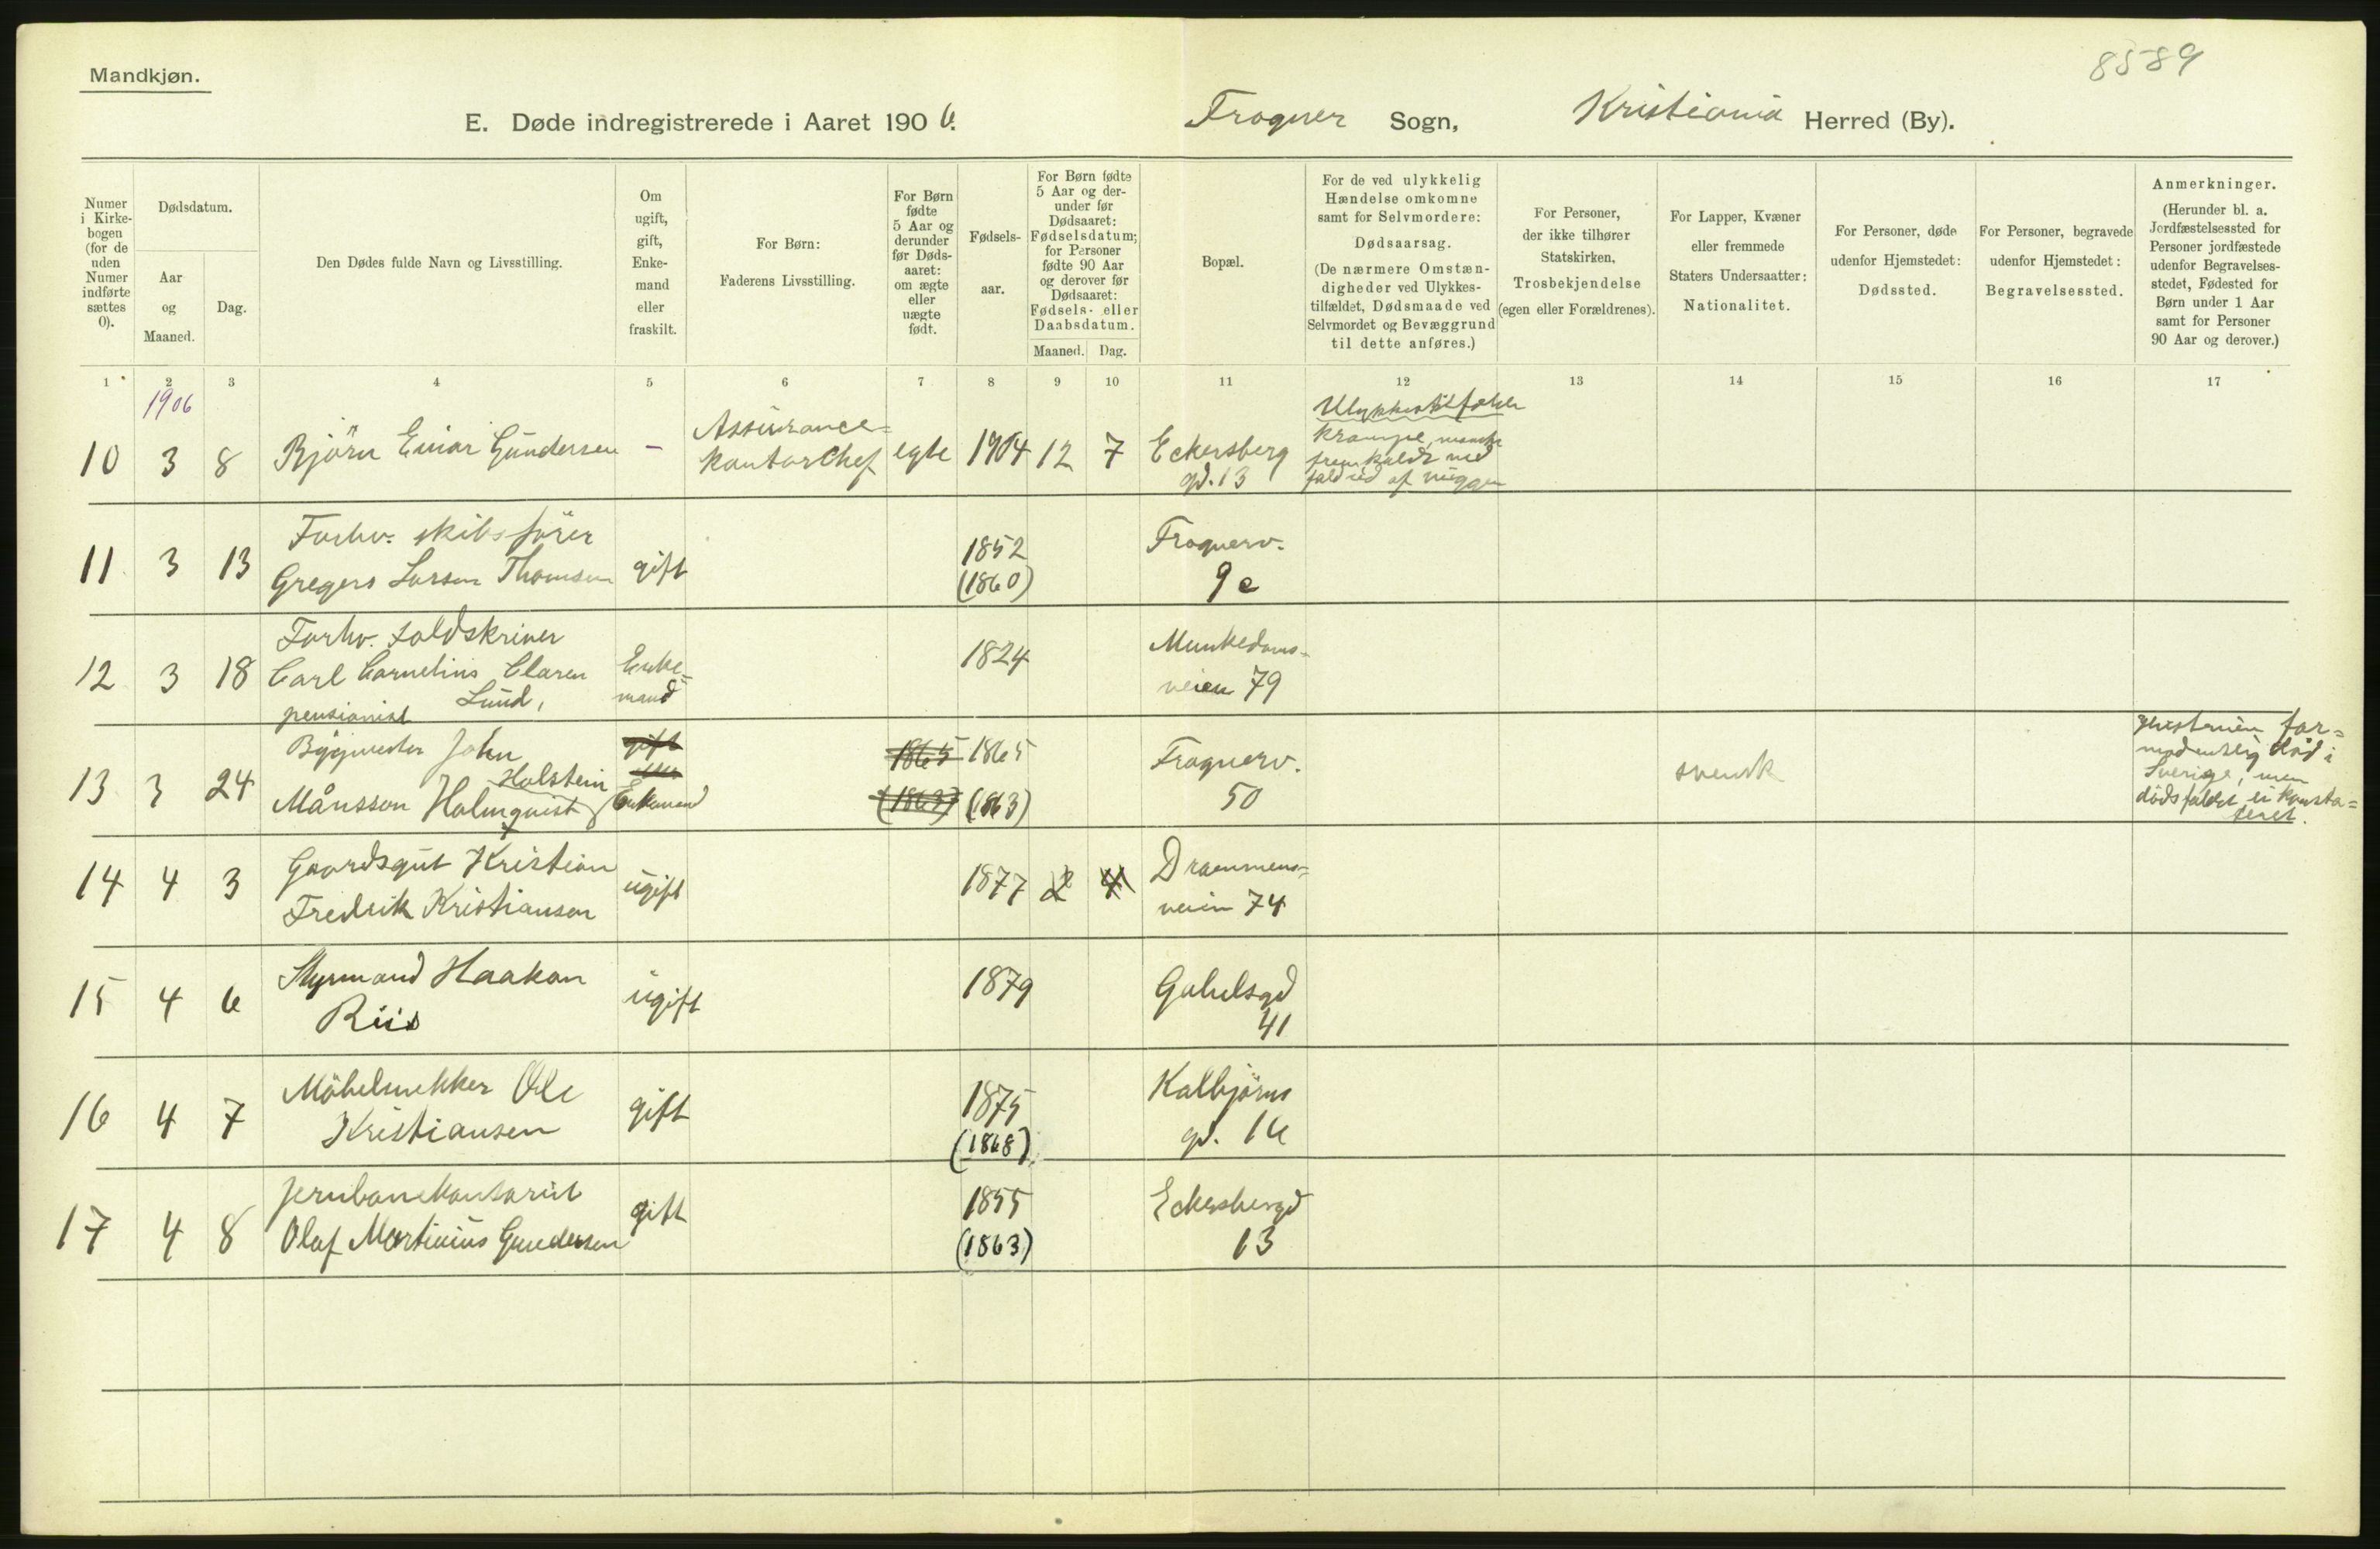 8589
Mandkjøn.
E. Døde indregistrerede i Aaret 1906. Frogner Sogn, Kristiania Herred (By).
Numer
i Kirke-
bogen
(for de
uden
Numer
indførte
sættes
0).
Dødsdatum.
Aar
og
Maaned.
Dag.
Den Dødes fulde Navn og Livsstilling.
Om
ugift,
gift,
Enke-
mand
eller
fraskilt.
For Børn:
Faderens Livsstilling.
For Børn
fødte
5 Aar og
derunder
før Døds-
aaret:
om ægte
eller
uægte
født.
Fødsels-
aar.
For Børn fødte
5 Aar og der-
under før
Dødsaaret:
Fødselsdatum;
for Personer
fødte 90 Aar
og derover før
Dødsaaret:
Fødsels- eller
Daabsdatum.
Maaned. Dag.
Bopæl.
For de ved ulykkelig
Hændelse omkomne
samt for Selvmordere:
Dødsaarsag.
(De nærmere Omstæn-
digheder ved Ulykkes-
tilfældet, Dødsmaade ved
Selvmordet og Bevæggrund
til dette anføres.)
For Personer,
der ikke tilhører
Statskirken,
Trosbekjendelse
(egen eller Forældrenes).
For Lapper, Kvæner
eller fremmede
Staters Undersaatter:
Nationalitet.
For Personer, døde
udenfor Hjemstedet:
Dødssted.
For Personer, begravede
udenfor Hjemstedet:
Begravelsessted.
Anmerkninger.
(Herunder bl. a.
Jordfæstelsessted for
Personer jordfæstede
udenfor Begravelses-
stedet, Fødested for
Børn under 1 Aar
samt for Personer
90 Aar og derover.)
1 2 3 4 5 6 7 8 9 10 11 12 13 14 15 16 17
1906
10 3 8 Björn Einar Gundersen -
Assurance=
kontorchef
egte 1904 12 7
Eckersberg
gd. 13
Ulykkestilfælde
krampe, maaske
fremkaldt ved
fald ud af vuggen
11 3 13
Forhv. skibsförer
Gregers Larsen Thomsen
gift
1852
(1860)
Frognerv.
9 c
12 3 18
Forhv. toldskriver
Carl Cornelius Claren
Lund,
pensionist
Enke=
mand
1824
Munkedams=
veien 79
13 3 24
Bygmester John
Holstein
Månsson Holmquist
gift
Enkemand
1865 1865
(1863) (1863)
Frognerv.
50
svensk
Hustruen for=
modentlig död i
Sverige, men
dödsfaldet ei konsta=
teret.
14 4 3
Gaardsgut Kristian
Fredrik Kristiansen
ugift
1877 2 4
Drammens=
veien 74
15 4 6
Styrmand Haakon
Riis
ugift
1879
Gabelsgd
41
16 4 7
Möbelsnekker Ole
Kristiansen
gift
1875
(1868)
Kalbjörns
gd. 16
17 4 8
Jernbanekontorist
Olaf Martinius Gundersen
gift
1855
(1863)
Eckersbergd
13